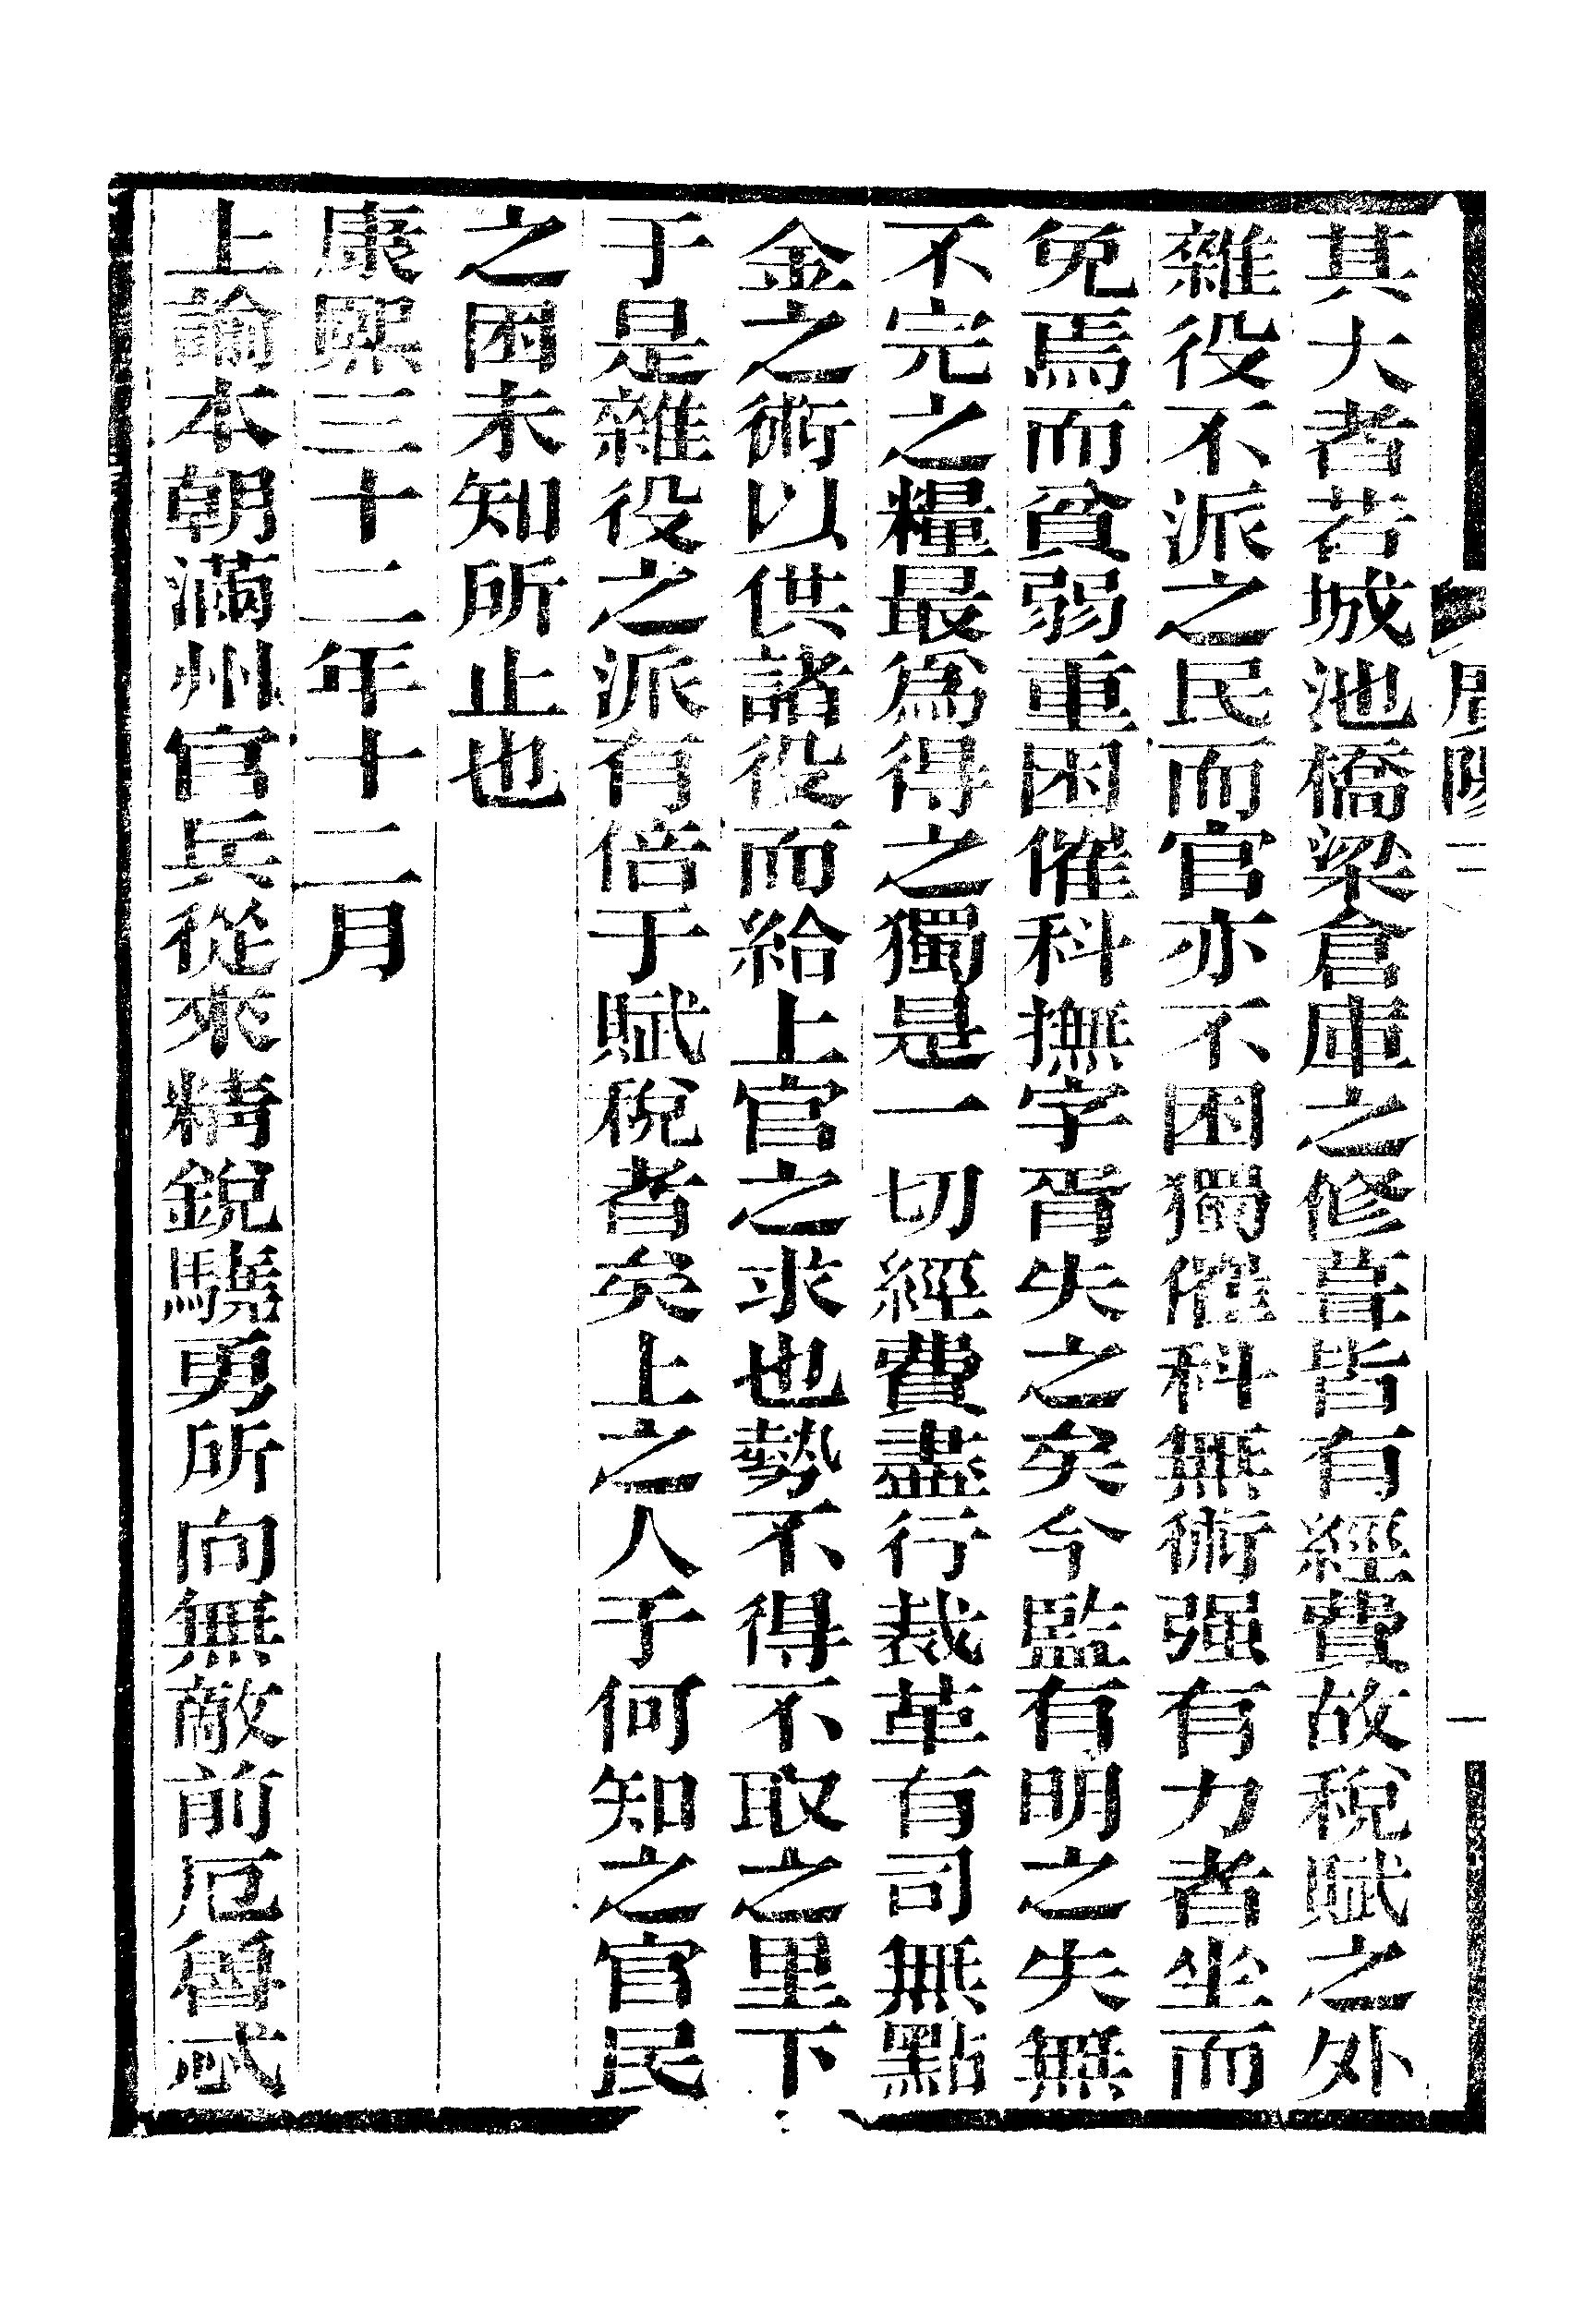 其大者若城池橋梁倉庫之修葺皆有經費故稅賦之外
雜役不派之民而官亦不困獨催科無術强有力者坐而
免焉而貧弱重困催科撫字胥失之矣今監有明之失無
不完之糧最爲得之獨是一切經費盡行裁革有司無點
金之術以供諸役而給上官之求也勢不得不取之里下
于是雜役之派有倍于賦稅者矣上之人于何知之官民
之困未知所止也
康熙三十二年十二月
上諭本朝滿州官兵從來精銳驍勇所向無敵前厄魯忒